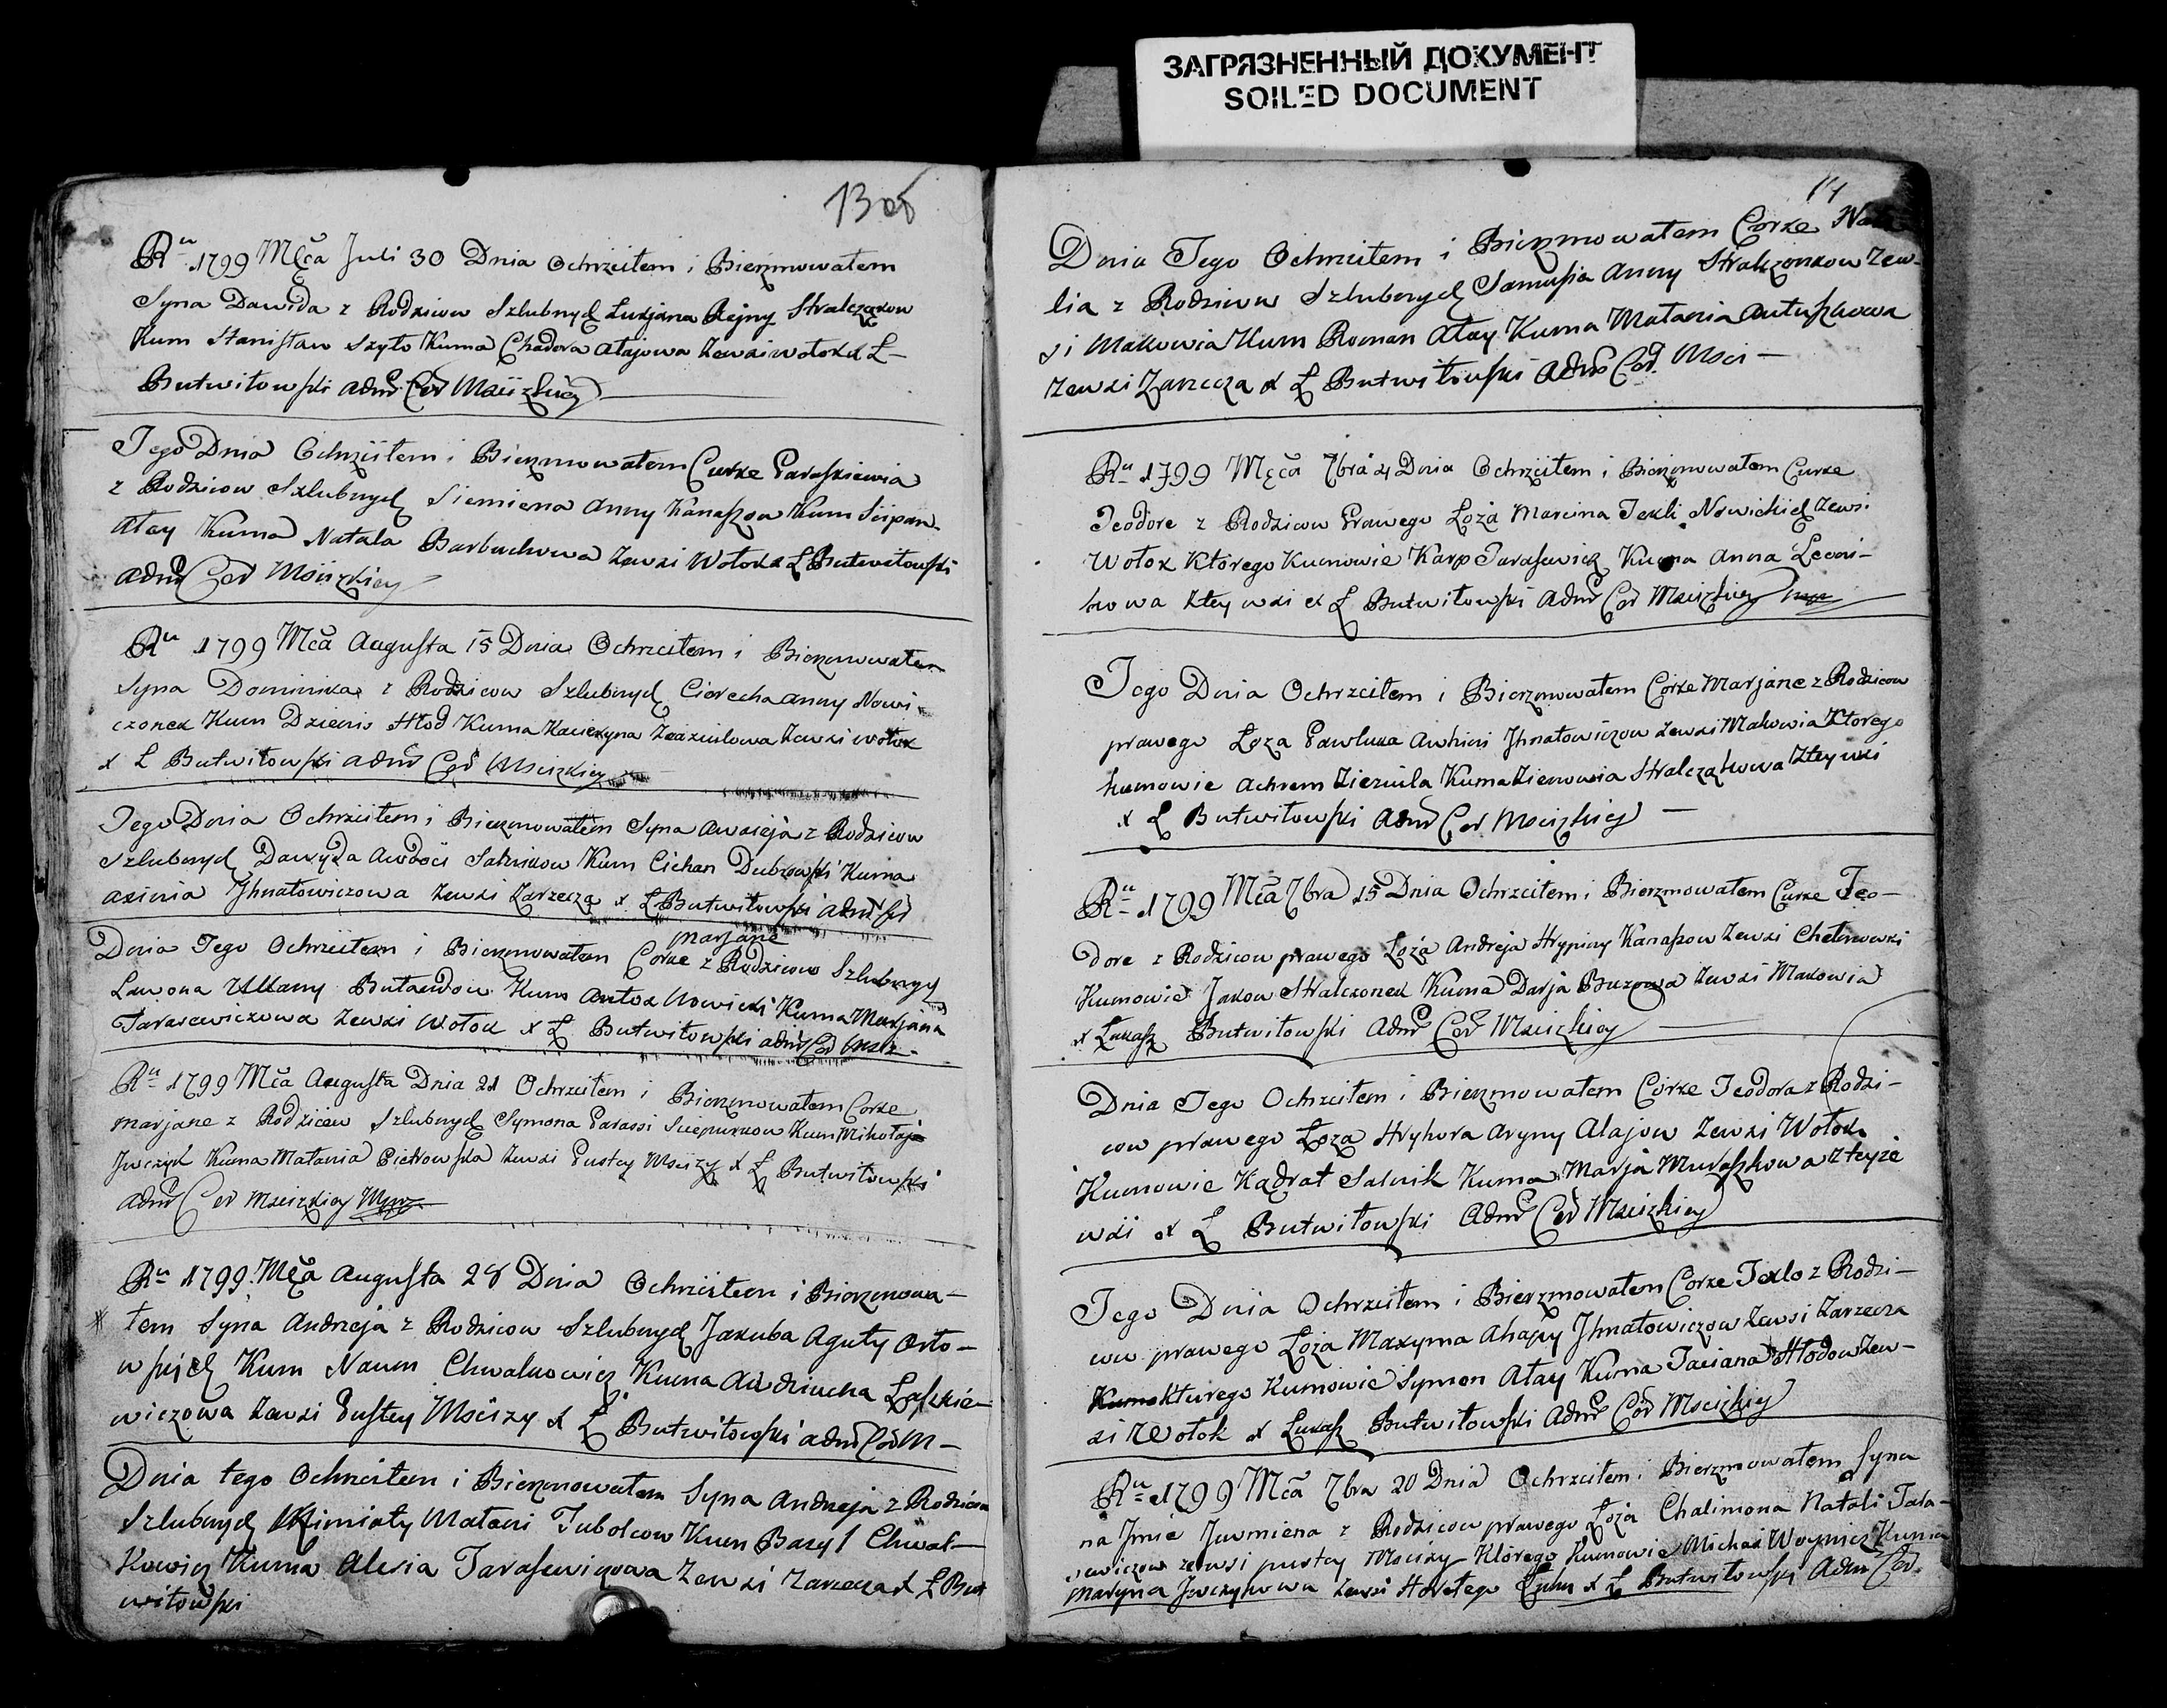 ЗАГРЯЗНЕННЫЙ ДОКУМЕНТ
SOILED DOCUMENT
13 об
Ru 1799 Mca Juli 30 Dnia Ochrzciłem i Bierzmowałem
Syna Dawida z Rodzicow Szlubnych Łukjana Rejny Stralczakow
Kum Stanisław Szyło Kuma Chadora Ałajowa Zewsi Wołok X Ł
Butwiłowski Adm Cer Msciżkiey
Tego Dnia Ochrzciłem i Bierzmowałem Curke Paraskiewia
z Rodzicow Szlubnych Siemiena Anny Kanaszow Kum Sciepan
Ałay Kuma Natala Barbuchowa Zewsi Wołok X Ł Butwiłowski
Adm Cer Msciżkiey
Ru 1799 Mca Augusta 15 Dnia Ochrzciłem i Bierzmowałem
Syna Dominika z Rodzicow Szlubnych Cierecha Anny Nowi
czonek Kum Dzienis Hłod Kuma Kacieryna Zwsi Wołok
X Ł Butwiłowski Adm Cer Msciżkiey
Tego Dnia Ochrzciłem i Bierzmowałem Syna Awsieja z Rodzicow
Szlubnych Dawyda Awdoci Salnikow Kum Cichan Dubrowski Kuma
Axinia Jhnatowiczowa Zewsi Zarzecza X Ł Butwiłowski Adm Cer
Marjane
Dnia Tego Ochrzciłem i Bierzmowałem Corke z Rodzicow Szlubnych
Lawona Ullany Kum Antok Nowicki Kuma Marjana
Tarasewiczowa Zewsi Wołok X Ł Butwiłowski Adm Cer Msciż
Ru 1799 Mca Augusta Dnia 21 Ochrzciłem i Bierzmowałem Corke
Marjane z Rodzicow Szlubnych Symona Parassi Kum Mikołaj
Jwczyk Kuma Matania Pietrowska Zewsi Pustey Mscizy X Ł Butwiłowski
Adm Cer Msciżkiey
Ru 1799 Mca Augusta 28 Dnia Ochrzciłem i Bierzmowa-
łem Syna Andreja z Rodzicow Szlubnych Jakuba Aguty Orło-
wskich Kum Naum Chwalkowicz Kuma Audziucha Łaszkie-
wiczowa Zewsi Pustey Mscizy X Ł Butwiłowski Adm Cer M-
Dnia tego Ochrzciłem i Bierzmowałem Syna Andreja z Rodzicow
Szlubnych Matani Tubolcow Kum Bazyl Chwal-
kowicz Kuma Alesia Tarasewiczowa Zewsi Zarzecza X Ł But
wiłowski
14
Dnia Tego Ochrzciłem i Bierzmowałem Corke Nata
lia z Rodzicow Szlubnych Samusia Anny Stralczonkow Zew-
si Makowia Kum Roman Ałay Kuma Matania Antuszkowa
Zewsi Zarzecza X Ł Butwiłowski Adm Cer Msci-
Ru 1799 Mca 7bra 4 Dnia Ochrzciłem i Bierzmowałem Curke
Teodore z Rodzicow Prawego Łoża Marcina Tekli Nowickich Zewsi
Wołok Którego Kumowie Karp Tarasewicz Kuma Anna Lewni-
kowa Zteywsi X Ł Butwiłowski Adm Cer Msciżkiey
Tego Dnia Ochrzciłem i Bierzmowałem Córke Marjane z Rodzicow
prawego Łoża Pawluka Jhnatowiczow Zewsi Makowia Ktorego
kumowie Achrem Ziezula Kuma Zienowia Stralczakowa Zteywsi
X Ł Butwiłowski Adm Cer Msciżkiey
Ru 1799 Mca 7bra 15 Dnia Ochrzciłem i Bierzmowałem Curke Teo-
dore z Rodzicow prawego Łoża Andreja Hrypiny Kanaszow Zewsi
Kumowie Jakow Stralczonek Kuma Darja Buzowa Zewsi Makowia
X Łukasz Butwiłowski Adm Cer Msciżkiey
Dnia Tego Ochrzciłem i Bierzmowałem Córke Teodora z Rodzi-
cow prawego Łoża Hryhora Aryny Ałajow Zewsi Wołok
Kumowie Kądrat Salnik Kuma Marja Muraszkowa Zteyże
wsi X Ł Butwiłowski Adm Cer Msciżkiey
Tego Dnia Ochrzciłem i Bierzmowałem Corke Teklo z Rodzi-
cow prawego Łoża Maxyma Ahapy Jhnatowiczow Zewsi Zarzecza
Kumokturego Kumowie Symon Ałay Kuma Taciana Hłodow Zew-
si Wołok X Łukasz Butwiłowski Adm Cer Msciżkiey
Ru 1799 Mca 7bra 20 Dnia Ochrzciłem i Bierzmowałem Syna
na Jmie z Rodzicow prawego Łoża Chalimona Natali Tara-
sewiczow zewsi pustey Mscizy Którego kumowie Michał Woynicz Kuma
Maryna Jwczykowa Zewsi X Ł Butwiłowski Adm Cer